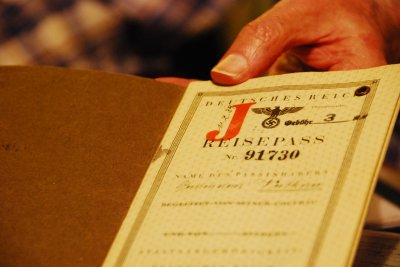 DEUTSCHES REICH
J
Gebühr 3
REISEPASS
Nr. 91730
NAME DES PASSINHABERS
BEGLEITET VON SEINER EHEFRAU
UND VON KINDERN
STAATSANGEHÖRIGKEIT